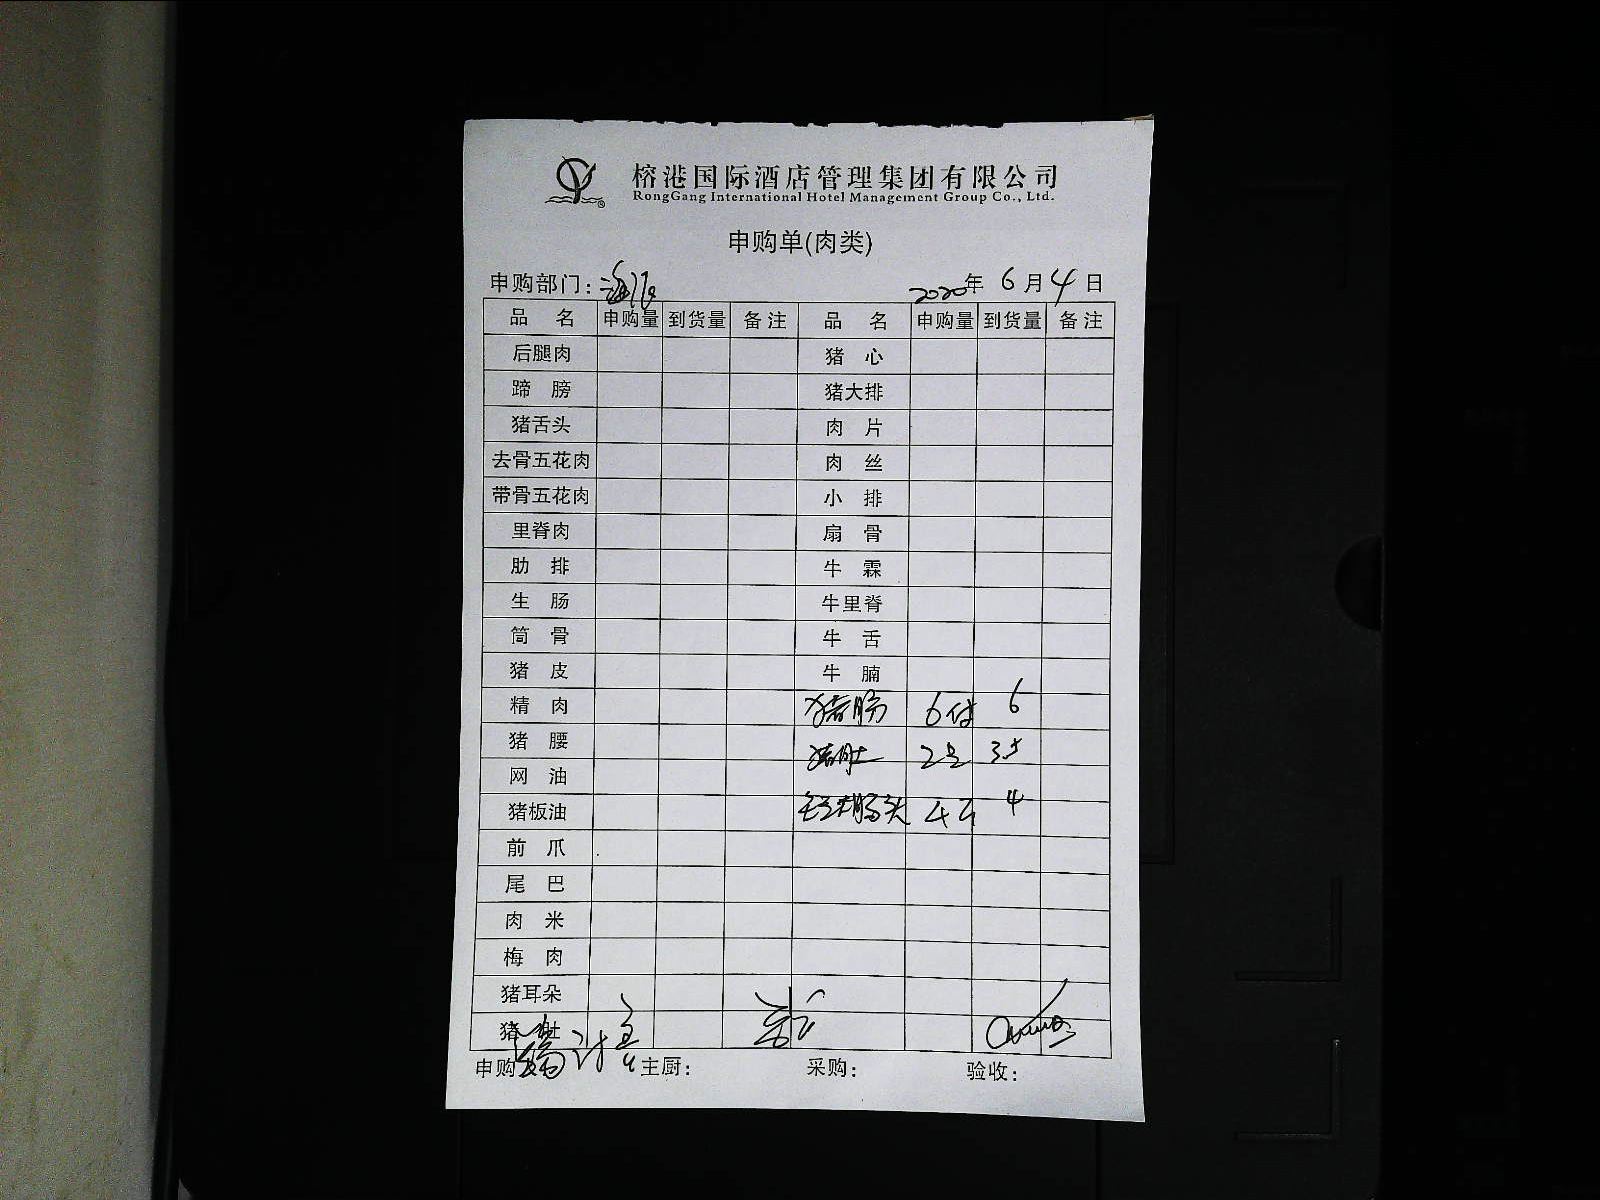 榕港国际酒店管理集团有限公司
RongGang International Hotel Management Group Co., Ltd.
申购单(肉类)
申购部门: 2020年 6月4日
品 名 申购量 到货量 备注 品 名 申购量 到货量 备注
后腿肉 猪 心
蹄 膀 猪大排
猪舌头 肉 片
去骨五花肉 肉 丝
带骨五花肉 小 排
里脊肉 扇 骨
肋 排 牛 霖
生 肠 牛里脊
筒 骨 牛 舌
猪 皮 牛 腩
精 肉 猪肠 6付 6
猪 腰 猪肚 2 3.5
网 油
猪板油 肠头 4斤 4
前 爪
尾 巴
肉 米
梅 肉
猪耳朵
猪 肚
申购 主厨: 采购: 验收: